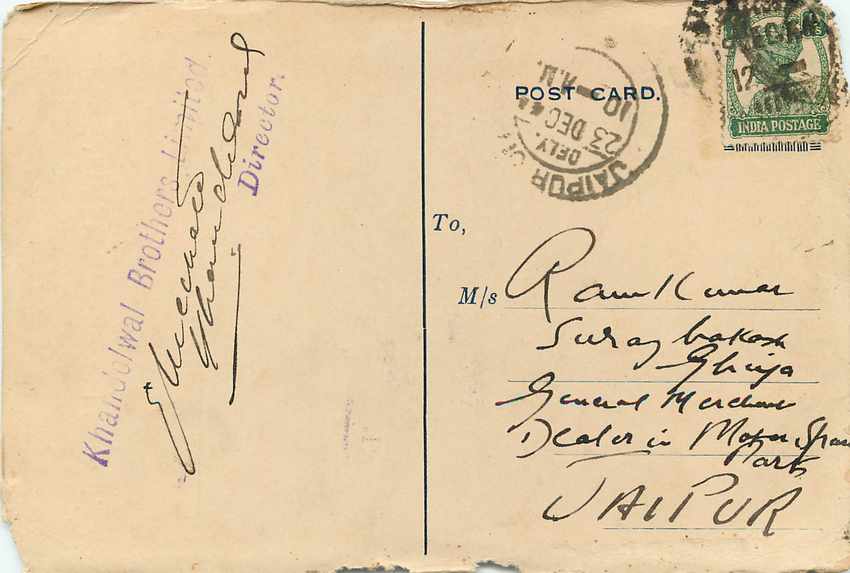 Khandelwal Brothers Limited
Director.
POST CARD.
JAIPUR
DELY.
23 DEC 44
10 A.M.
DEC
12
INDIA POSTAGE
To,
M/s Ram Kumar
Suraj bakash
Ghiya
General Merchant
Dealer in Motor Spare
Parts
JAIPUR